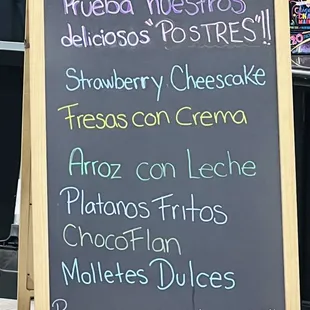 Prueba nuestros
deliciosos "POSTRES"!!
Strawberry Cheescake
Fresas con Crema
Arroz con Leche
Platanos Fritos
ChocoFlan
Molletes Dulces